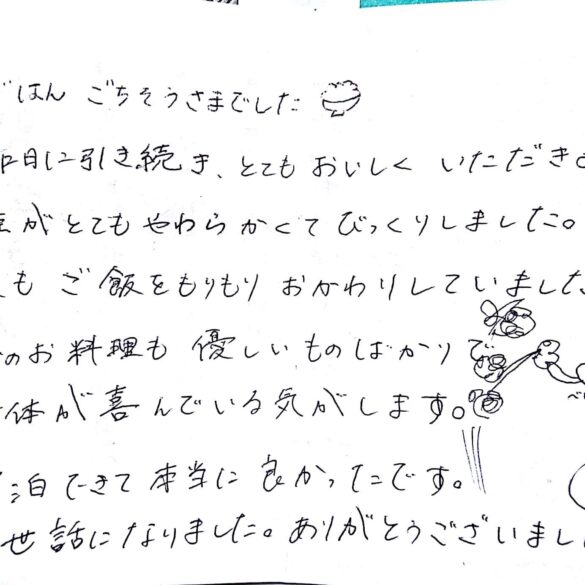 ごはん ごちそうさまでした
昨日に引き続き、とてもおいしく いただき
がとてもやわらかくてびっくりしました。
も ご飯をもりもり おかわりしていました
のお料理も 優しいものばかりで
体が喜んでいる気がします。
泊できて本当に良かったです。
世話になりました。ありがとうございまし